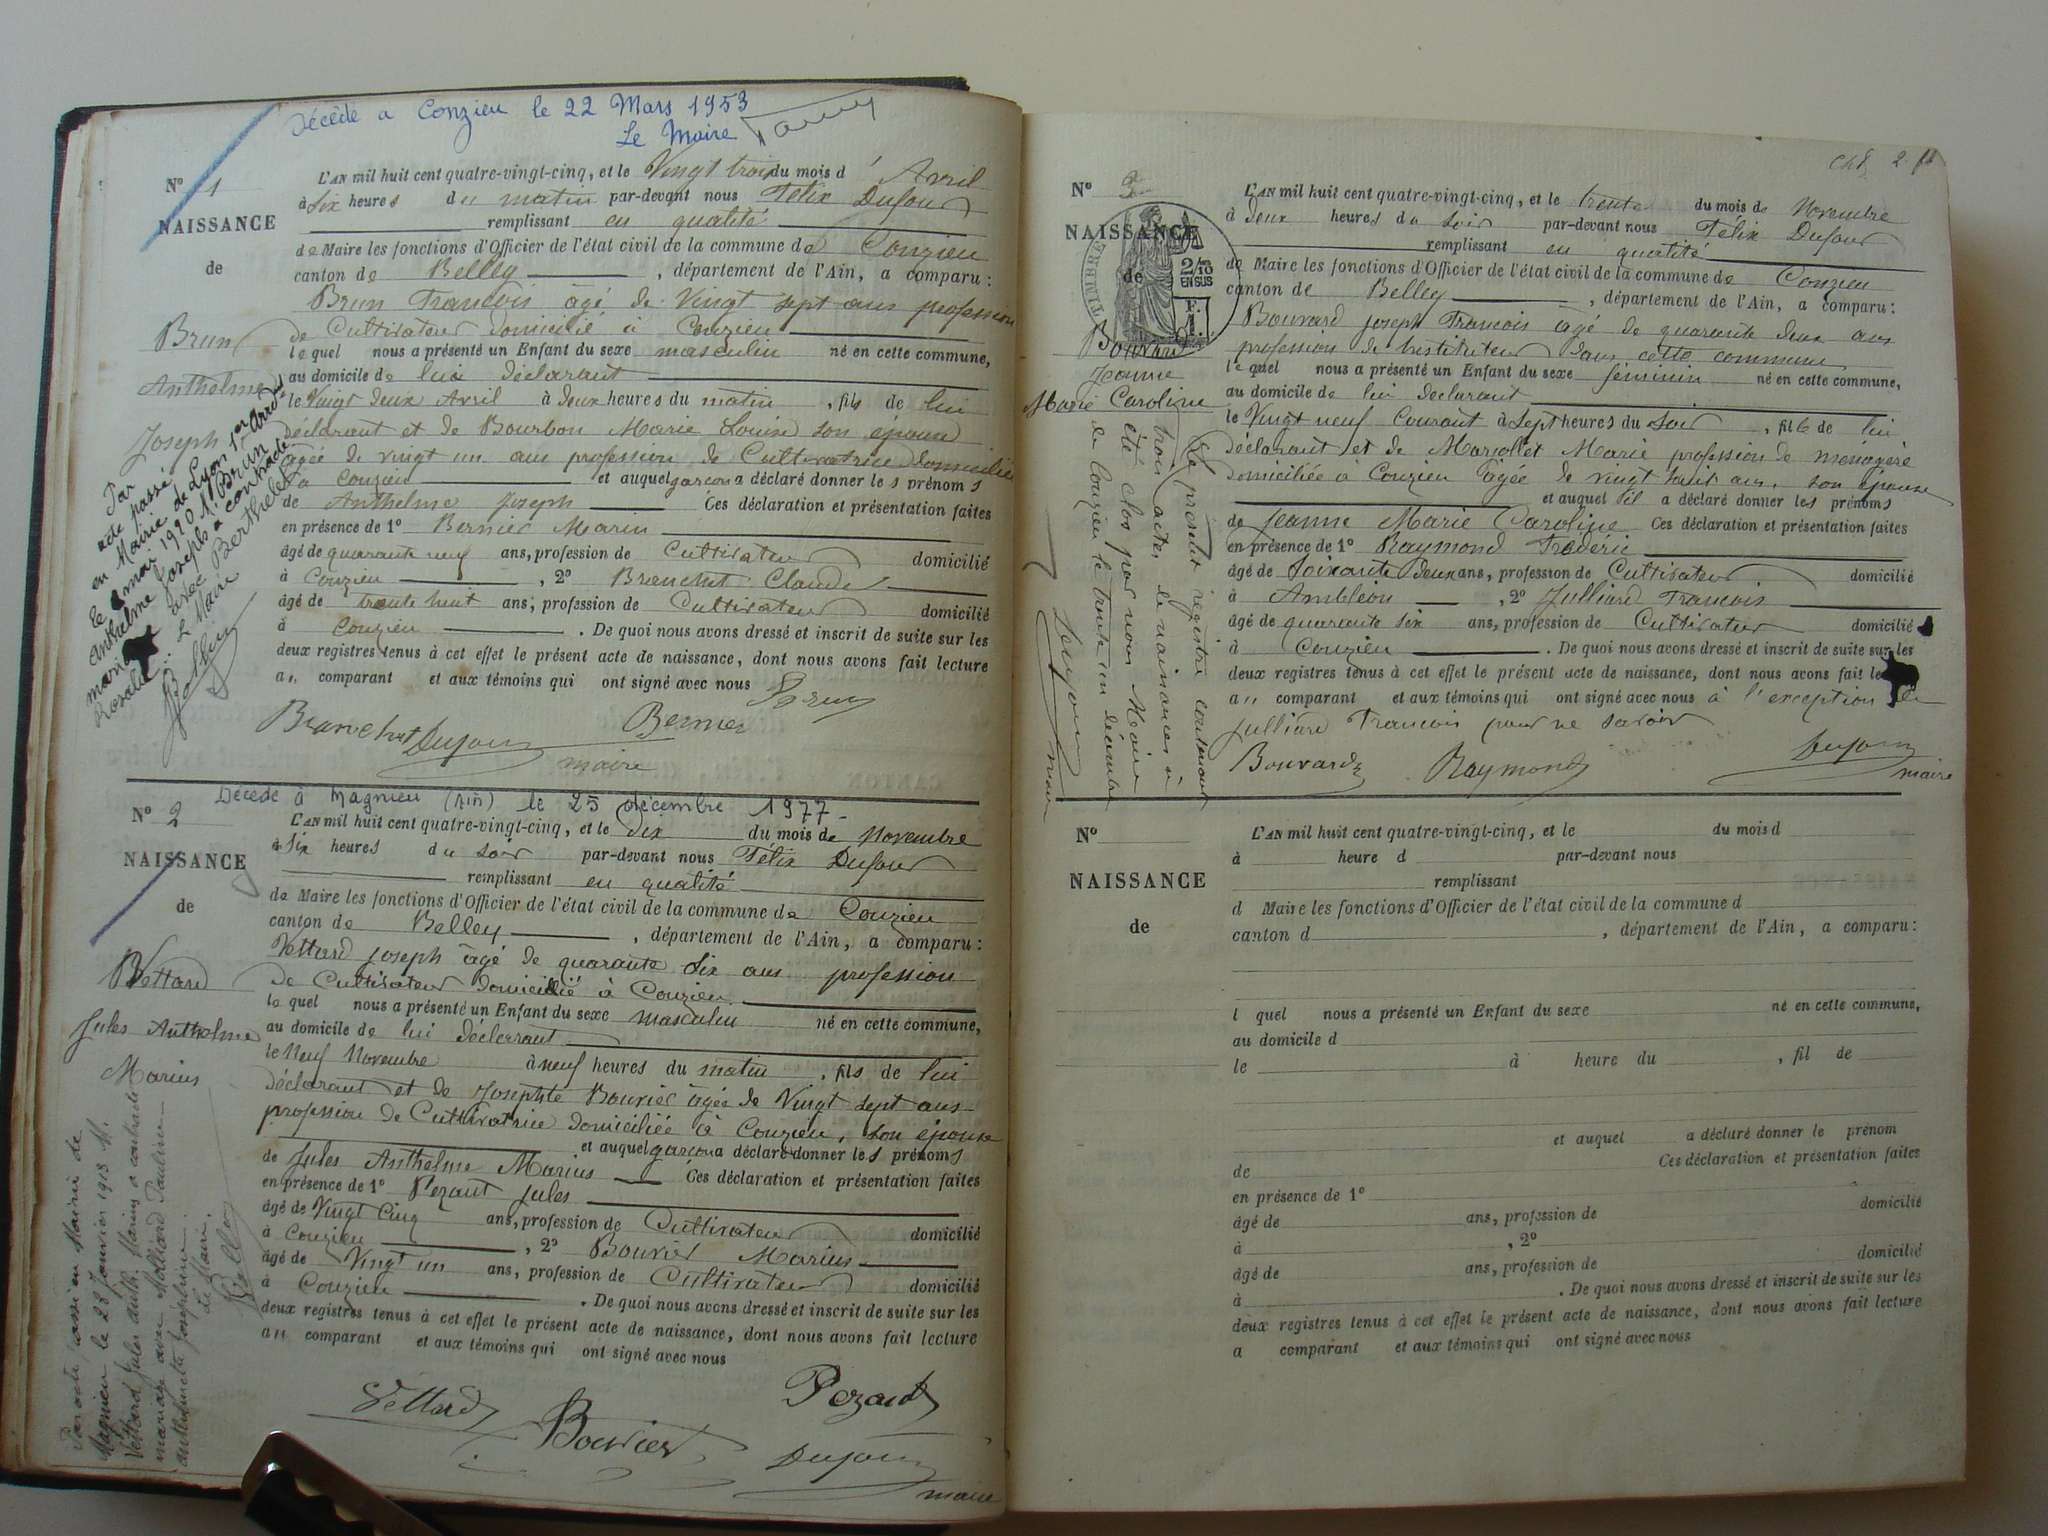 Décédé a Conzieu le 22 Mars 1953
Le Maire
N° 1
NAISSANCE
de
Brun
Anthelme
Joseph
Par
acte passé
en Mairie de Lyon 1er Arrd
le mai 1901 Brun
Anthelme Joseph a contracté
mariage avec Berthelet
Rosalie
Le Maire
L'AN mil huit cent quatre-vingt-cinq, et le Vingt trois du mois d' Avril
à Six heures du matin par-devant nous Félix Dufour
remplissant en qualité
de Maire les fonctions d'Officier de l'état civil de la commune de Conzieu
canton de Belley, département de l'Ain, a comparu:
Brun Francois âgé de Vingt sept ans profession
de Cultivateur domicilié à Conzieu
lequel nous a présenté un Enfant du sexe masculin né en cette commune,
au domicile de lui déclarant
le Vingt deux Avril à deux heures du matin, fils de lui
déclarant et de Bourbon Marie Louise son épouse
âgée de vingt un ans profession de Cultivatrice domiciliée
à Conzieu et auquel garçon a déclaré donner les prénoms
de Anthelme Joseph Ces déclaration et présentation faites
en présence de 1° Bernier Marin
âgé de quarante neuf ans, profession de Cultivateur domicilié
à Conzieu, 2° Branchut Claude
âgé de trente huit ans, profession de Cultivateur domicilié
à Conzieu. De quoi nous avons dressé et inscrit de suite sur les
deux registres tenus à cet effet le présent acte de naissance, dont nous avons fait lecture
au comparant et aux témoins qui ont signé avec nous
Brun
Branchut Dufour Bernier
maire
N° 2 Décédé à Magnieu (Ain) le 25 décembre 1977
NAISSANCE
de
Vettard
Jules Anthelme
Marius
Par acte passé en Mairie de
Magnieu le 28 Janvier 1913 M.
Vettard Jules Anth. Marius a contracté
mariage avec Molliard Pauline
Anthelmette Joséphine.
Le Maire.
L'AN mil huit cent quatre-vingt-cinq, et le dix du mois de Novembre
à Six heures du soir par-devant nous Félix Dufour
remplissant en qualité
de Maire les fonctions d'Officier de l'état civil de la commune de Conzieu
canton de Belley, département de l'Ain, a comparu:
Vettard Joseph âgé de quarante six ans profession
de Cultivateur domicilié à Conzieu
lequel nous a présenté un Enfant du sexe masculin né en cette commune,
au domicile de lui déclarant
le Neuf Novembre à neuf heures du matin, fils de lui
déclarant et de Josephte Bouvier âgée de Vingt sept ans
profession de Cultivatrice domiciliée à Conzieu, son épouse
et auquel garçon a déclaré donner les prénoms
de Jules Anthelme Marius Ces déclaration et présentation faites
en présence de 1° Pezant Jules
âgé de Vingt Cinq ans, profession de Cultivateur domicilié
à Conzieu, 2° Bouvier Marius
âgé de Vingt un ans, profession de Cultivateur domicilié
à Conzieu. De quoi nous avons dressé et inscrit de suite sur les
deux registres tenus à cet effet le présent acte de naissance, dont nous avons fait lecture
au comparant et aux témoins qui ont signé avec nous
Vettard Pezant
Bouvier Dufour
maire
N° 3
NAISSANCE
de
2/10
EN SUS
Bouvard
Jeanne
Marie Caroline
Le présent registre contenant
trois actes de naissances a
été clos par nous Maire
de Conzieu le trente un décembre
Dufour maire
L'AN mil huit cent quatre-vingt-cinq, et le trente du mois de Novembre
à deux heures du soir par-devant nous Félix Dufour
remplissant en qualité
de Maire les fonctions d'Officier de l'état civil de la commune de Conzieu
canton de Belley, département de l'Ain, a comparu:
Bouvard Joseph Francois âgé de quarante deux ans
profession de Instituteur dans cette commune
lequel nous a présenté un Enfant du sexe féminin né en cette commune,
au domicile de lui déclarant
le Vingt neuf Courant à Sept heures du Soir, fille de lui
déclarant et de Marjollet Marie profession de ménagère
domiciliée à Conzieu âgée de vingt huit ans, son épouse
et auquel a déclaré donner les prénoms
de Jeanne Marie Caroline Ces déclaration et présentation faites
en présence de 1° Raymond Frédéric
âgé de Soixante deux ans, profession de Cultivateur domicilié
à Ambléon, 2° Julliard Francois
âgé de quarante six ans, profession de Cultivateur domicilié
à Conzieu. De quoi nous avons dressé et inscrit de suite sur les
deux registres tenus à cet effet le présent acte de naissance, dont nous avons fait
au comparant et aux témoins qui ont signé avec nous à l'exception de
Julliard Francois pour ne savoir
Bouvard Raymond Dufour
maire
N°
NAISSANCE
de
L'AN mil huit cent quatre-vingt-cinq, et le du mois d
à heure d par-devant nous
remplissant
d Maire les fonctions d'Officier de l'état civil de la commune d
canton d, département de l'Ain, a comparu:
l quel nous a présenté un Enfant du sexe né en cette commune,
au domicile d
le à heure du, fil de
et auquel a déclaré donner le prénom
de Ces déclaration et présentation faites
en présence de 1°
âgé de ans, profession de domicilié
à, 2°
âgé de ans, profession de domicilié
à. De quoi nous avons dressé et inscrit de suite sur les
deux registres tenus à cet effet le présent acte de naissance, dont nous avons fait lecture
a comparant et aux témoins qui ont signé avec nous